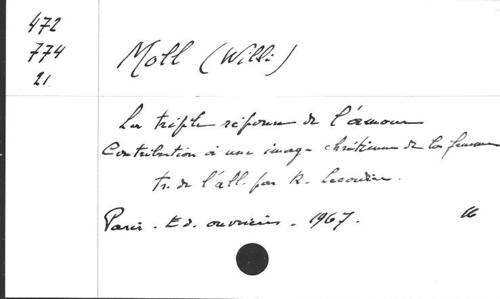 472
774
21
Moll (Willi)
La triple réponse de l'amour
Contribution à une image chrétienne de la femme
tr. de l'all. par R.
Paris. Ed. ouvrières. 1967. 16